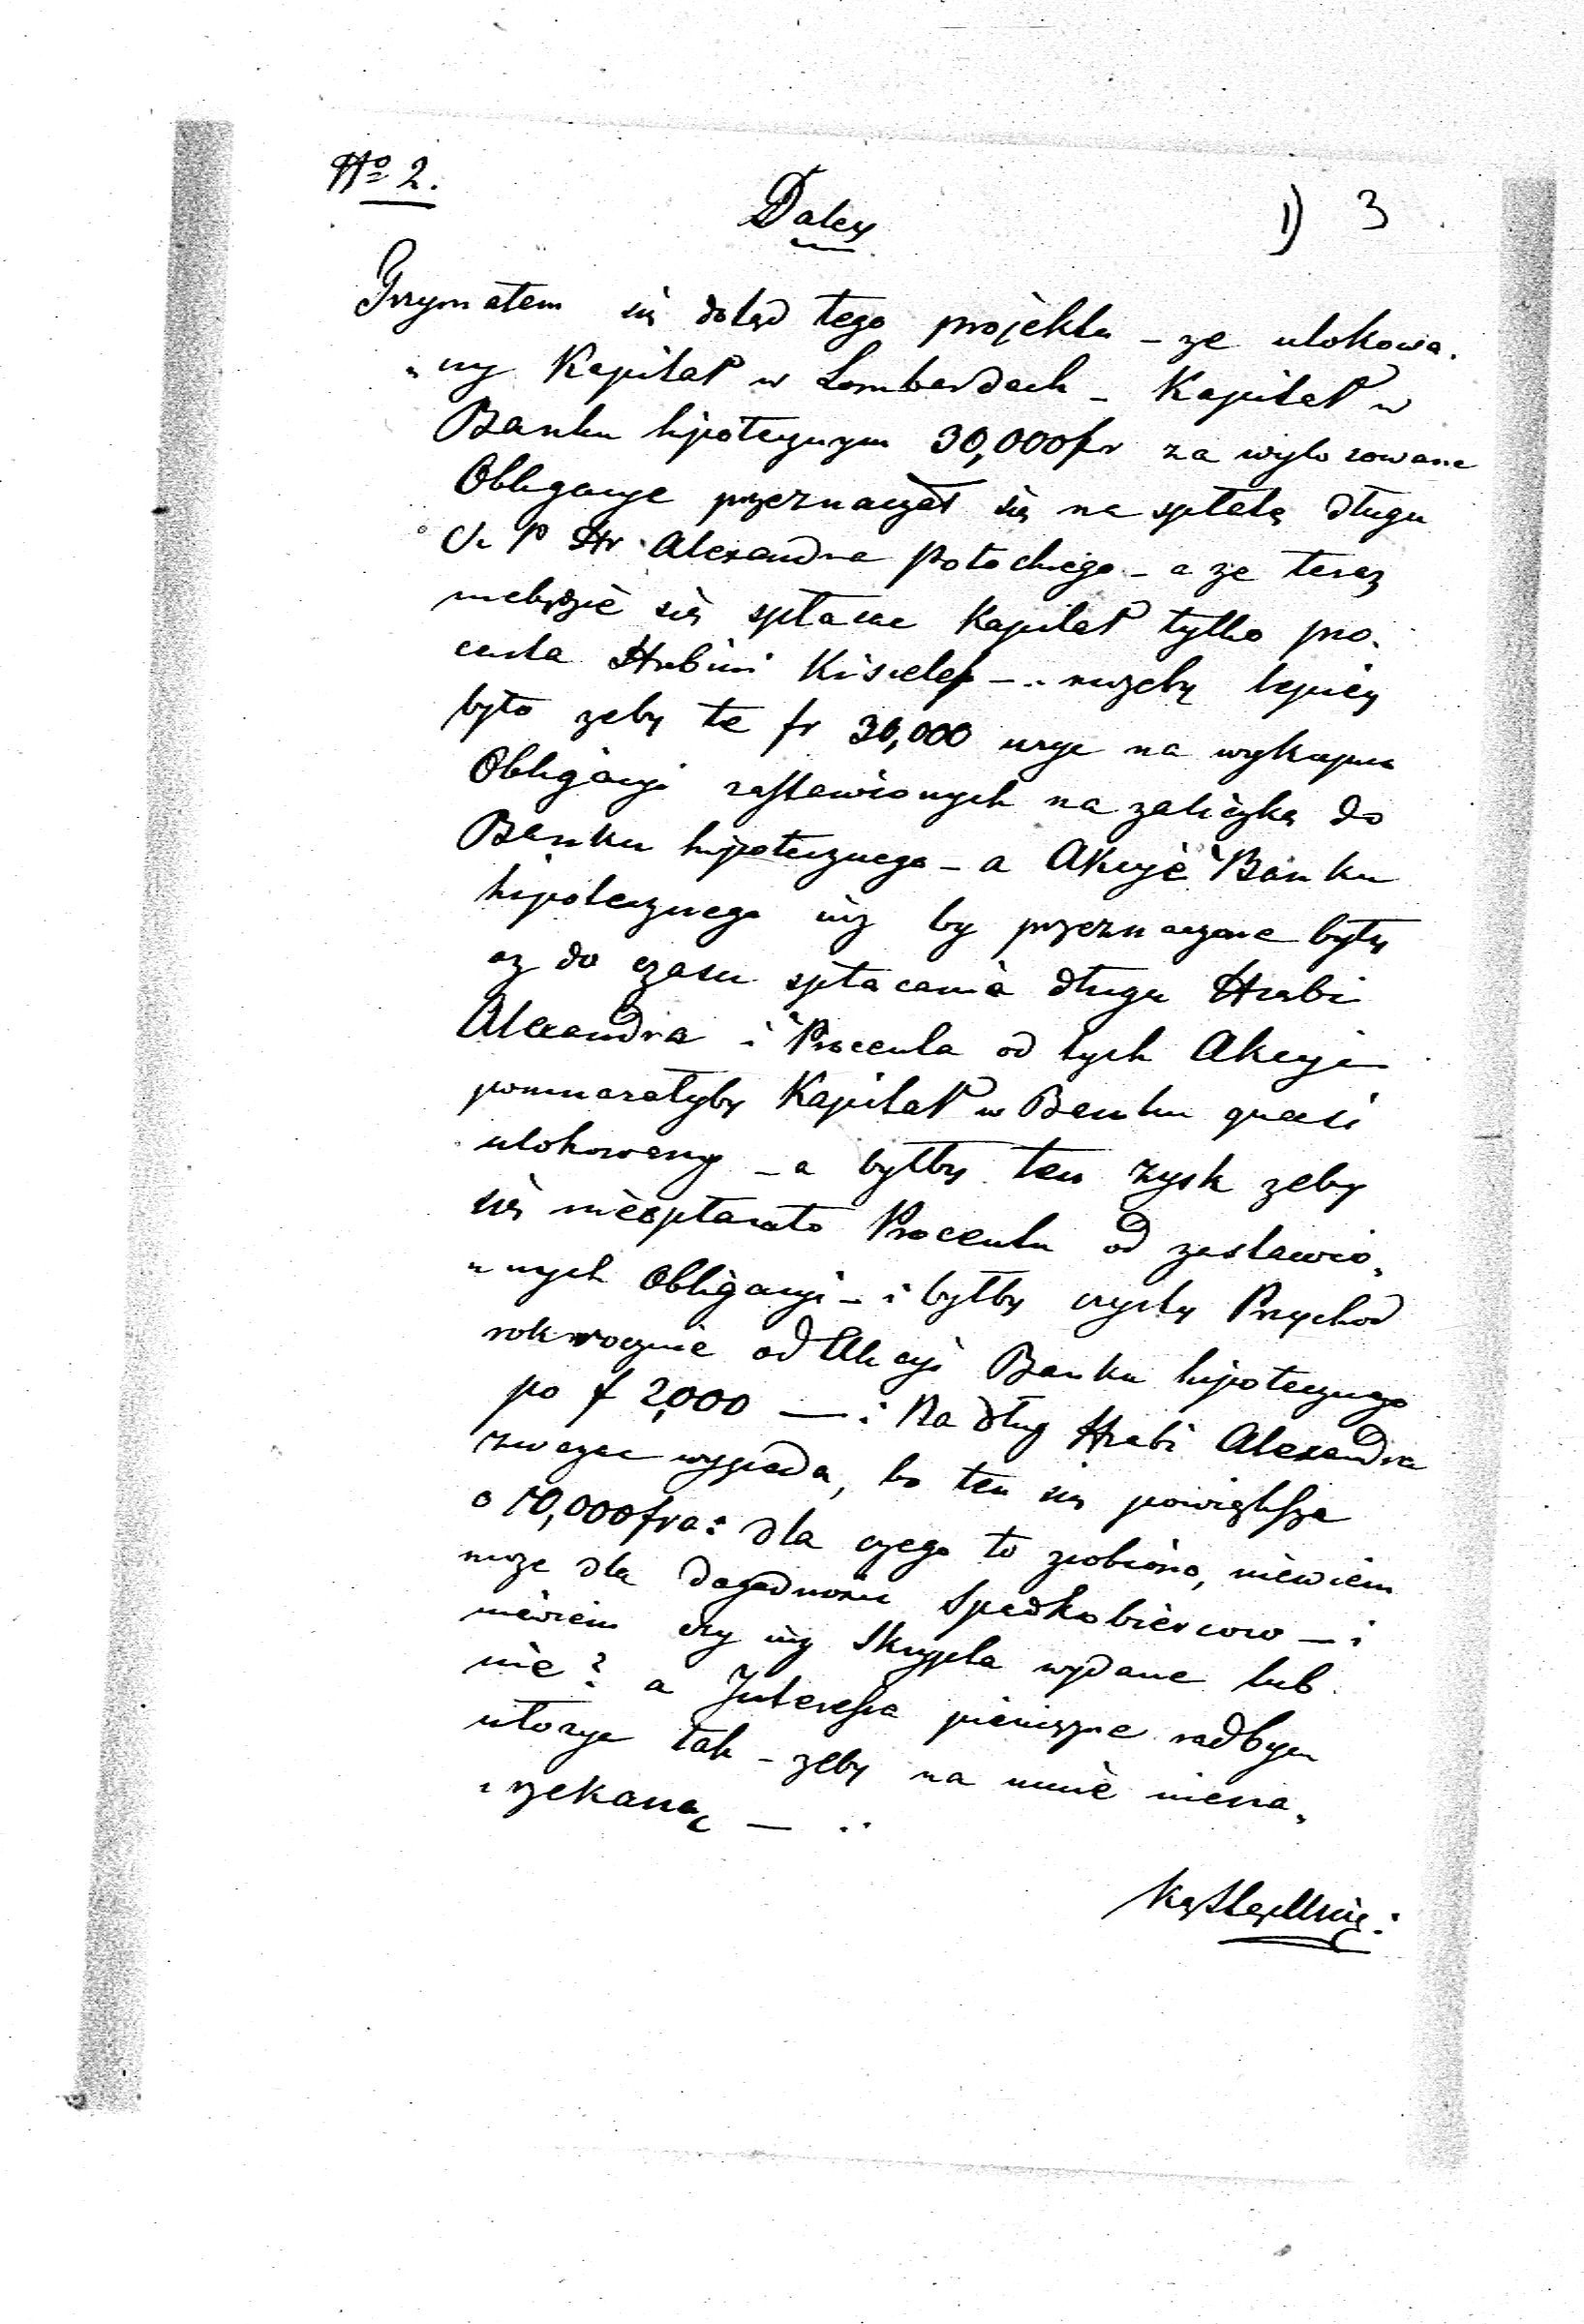 No 2.
Daley
1) 3
Trzymałem się dotąd tego projektu - ze ulokowa-
ny Kapitał w Lombardach - Kapitał w
Banku hipotecznym 30,000 fr za wylosowane
Obligacye przeznaczał się na spłatę długu
Hr Alexandra Potockiego - a ze teraz
niebędzie się spłacac Kapitał tylko pro-
centa Hrabini Kisielef - mozeby lepiey
było zeby te fr 30,000 uzyc na wykupno
Obligacyi zastawionych na zaliczkę do
Banku hipotecznego - a Akcyie Banku
hipotecznego juz by przeznaczone były
az do czasu spłacania długu Hrabi
Alexandra i Procenta od tych Akcyi
pomnazałyby Kapitał w Banku quasi
ulokowany - a byłby ten zysk zeby
się nieopłacało Procentu od zastawio-
nych Obligacyi - i byłby czysty Przychod
rok rocznie od Akcyi Banku hipotecznego
po f 2,000 — i Na dług Hrabi Alexandra
zwazac wypada, bo ten się powiększa
o 10,000 fra: dla czego to zrobiono, niewiem
moze dla dogodnosci Spadkobiercow — i
niewiem czy juz Skrypta wydane lub
nie? a Interessa pienięzne radbym
ułozyc tak - zeby na mnie niena-
rzekano —